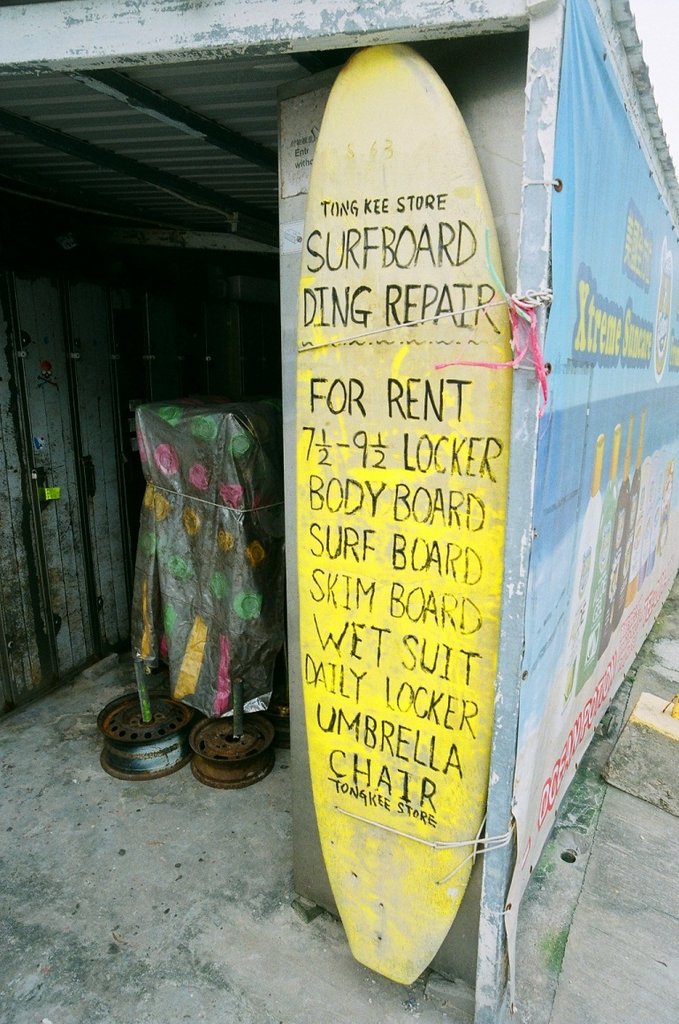 TONG KEE STORE
SURFBOARD
DING REPAIR
FOR RENT
7½-9½ LOCKER
BODY BOARD
SURF BOARD
SKIM BOARD
WET SUIT
DAILY LOCKER
UMBRELLA
CHAIR
TONGKEE STORE
Xtreme